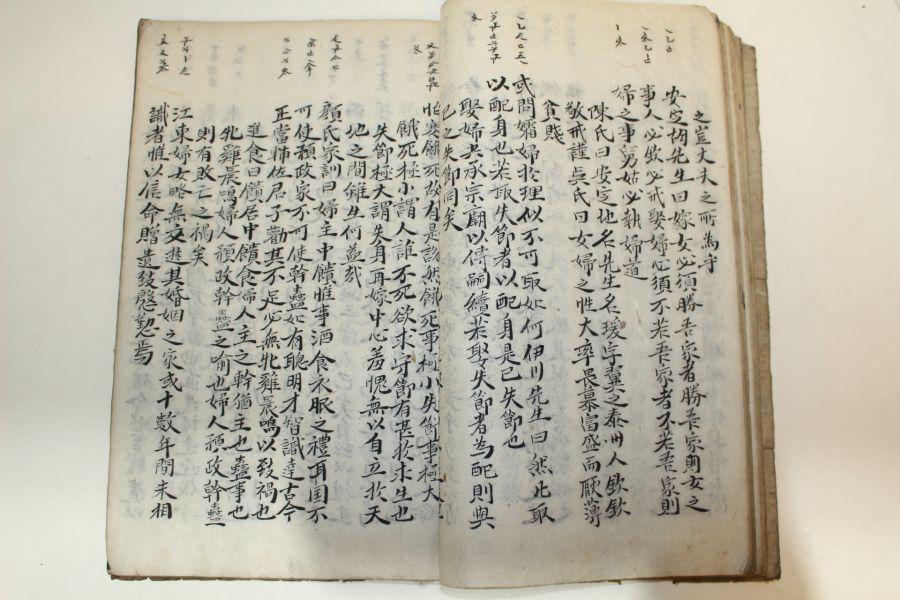 之豈丈夫之所爲乎
安定胡先生曰嫁女必須勝吾家者勝吾家則女之
事人必欽必戒娶婦必須不若吾家者不若吾家則
婦之事舅姑必執婦道
陳氏曰安定地名先生名瑗字翼之泰州人欽欽
敬戒謹吳氏曰女婦之性大率畏慕富盛而厭薄
貧賤
或問孀婦於理似不可取如何伊川先生曰然凡取
以配身也若取失節者以配身是己失節也
娶婦共承宗廟以傳嗣續若娶失節者爲配則與
己之失節同矣
怕寒餓死故有是說然餓死事極小失節事極大
餓死極小謂人誰不死欲求守節有甚於求生也
失節極大謂失身再嫁中心羞愧無以自立於天
地之間雖生何益哉
顏氏家訓曰婦主中饋惟事酒食衣服之禮耳国不
可使預政家不可使幹蠱如有聰明才智識達古今
正當輔佐君子勸其不足必無牝雞晨鳴以致禍也
進食曰饋居中饋食婦人主之幹猶主也蠱事也
牝雞晨鳴婦人預政幹蠱之喻也婦人預政幹蠱
則有敗亡之禍矣
江東婦女略無交遊其婚姻之家或十數年間未相
識者惟以信命贈遺致慇懃焉